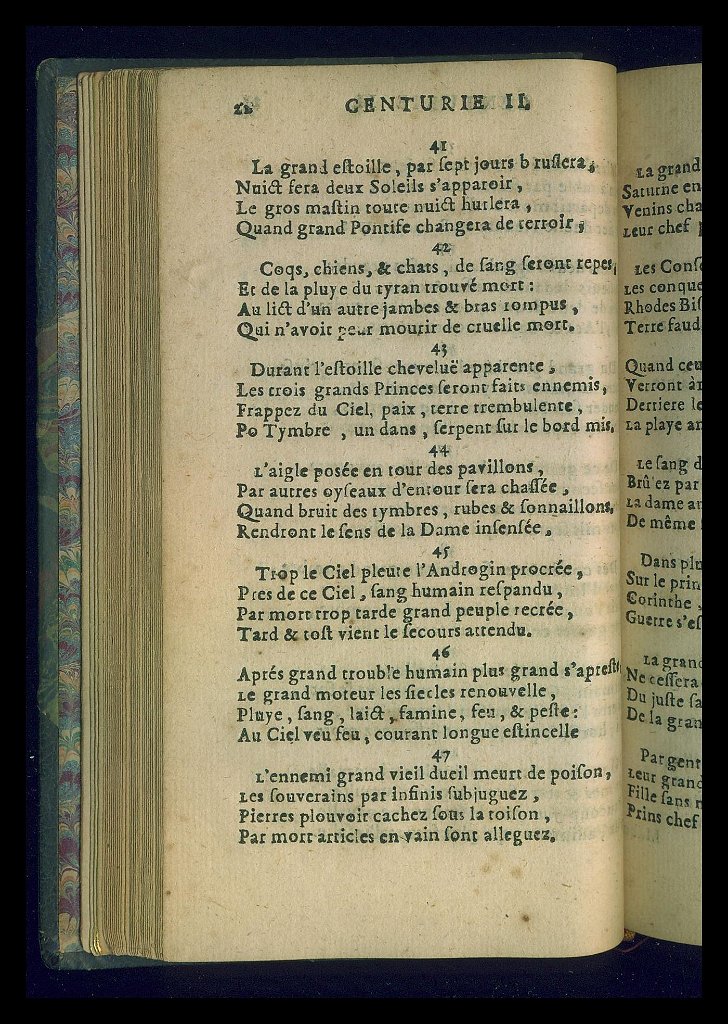 22 CENTURIE II.
41
La grand eſtoille, par ſept jours bruſlera,
Nuict fera deux Soleils s'apparoir,
Le gros maſtin toute nuict hurlera,
Quand grand Pontife changera de terroir,
42
Coqs, chiens, & chats, de ſang ſeront repes,
Et de la pluye du tyran trouvé mort:
Au lict d'un autre jambes & bras rompus,
Qui n'avoit peur mourir de cruelle mort.
43
Durant l'eſtoille cheveluë apparente,
Les trois grands Princes ſeront faits ennemis,
Frappez du Ciel, paix, terre trembulente,
Po Tymbre, un dans, ſerpent ſur le bord mis.
44
L'aigle posée en tour des pavillons,
Par autres oyſeaux d'entour ſera chaſſée,
Quand bruit des tymbres, rubes & ſonnaillons,
Rendront le ſens de la Dame inſenſée,
45
Trop le Ciel pleure l'Androgin procrée,
Pres de ce Ciel, ſang humain reſpandu,
Par mort trop tarde grand peuple recrée,
Tard & toſt vient le ſecours attendu.
46
Aprés grand trouble humain plus grand s'apreſte
Le grand moteur les ſiecles renouvelle,
Pluye, ſang, laict, famine, feu, & peſte:
Au Ciel veu feu, courant longue eſtincelle
47
L'ennemi grand vieil dueil meurt de poiſon,
Les ſouverains par infinis ſubjuguez,
Pierres plouvoir cachez ſous la toiſon,
Par mort articles en vain ſont alleguez.
La grand
Saturne en
Venins cha
Leur chef
Les Conſ
Les conque
Rhodes Biſ
Terre faud
Quand ceu
Verront
Derriere le
La playe an
Le ſang d
Brû ez par
La dame
De même
Dans plu
Sur le prin
Corinthe,
Guerre s'eſ
La grand
Ne ceſſera
Du juſte ſa
De la gran
Par gent
Leur grand
Fille ſans
Prins chef